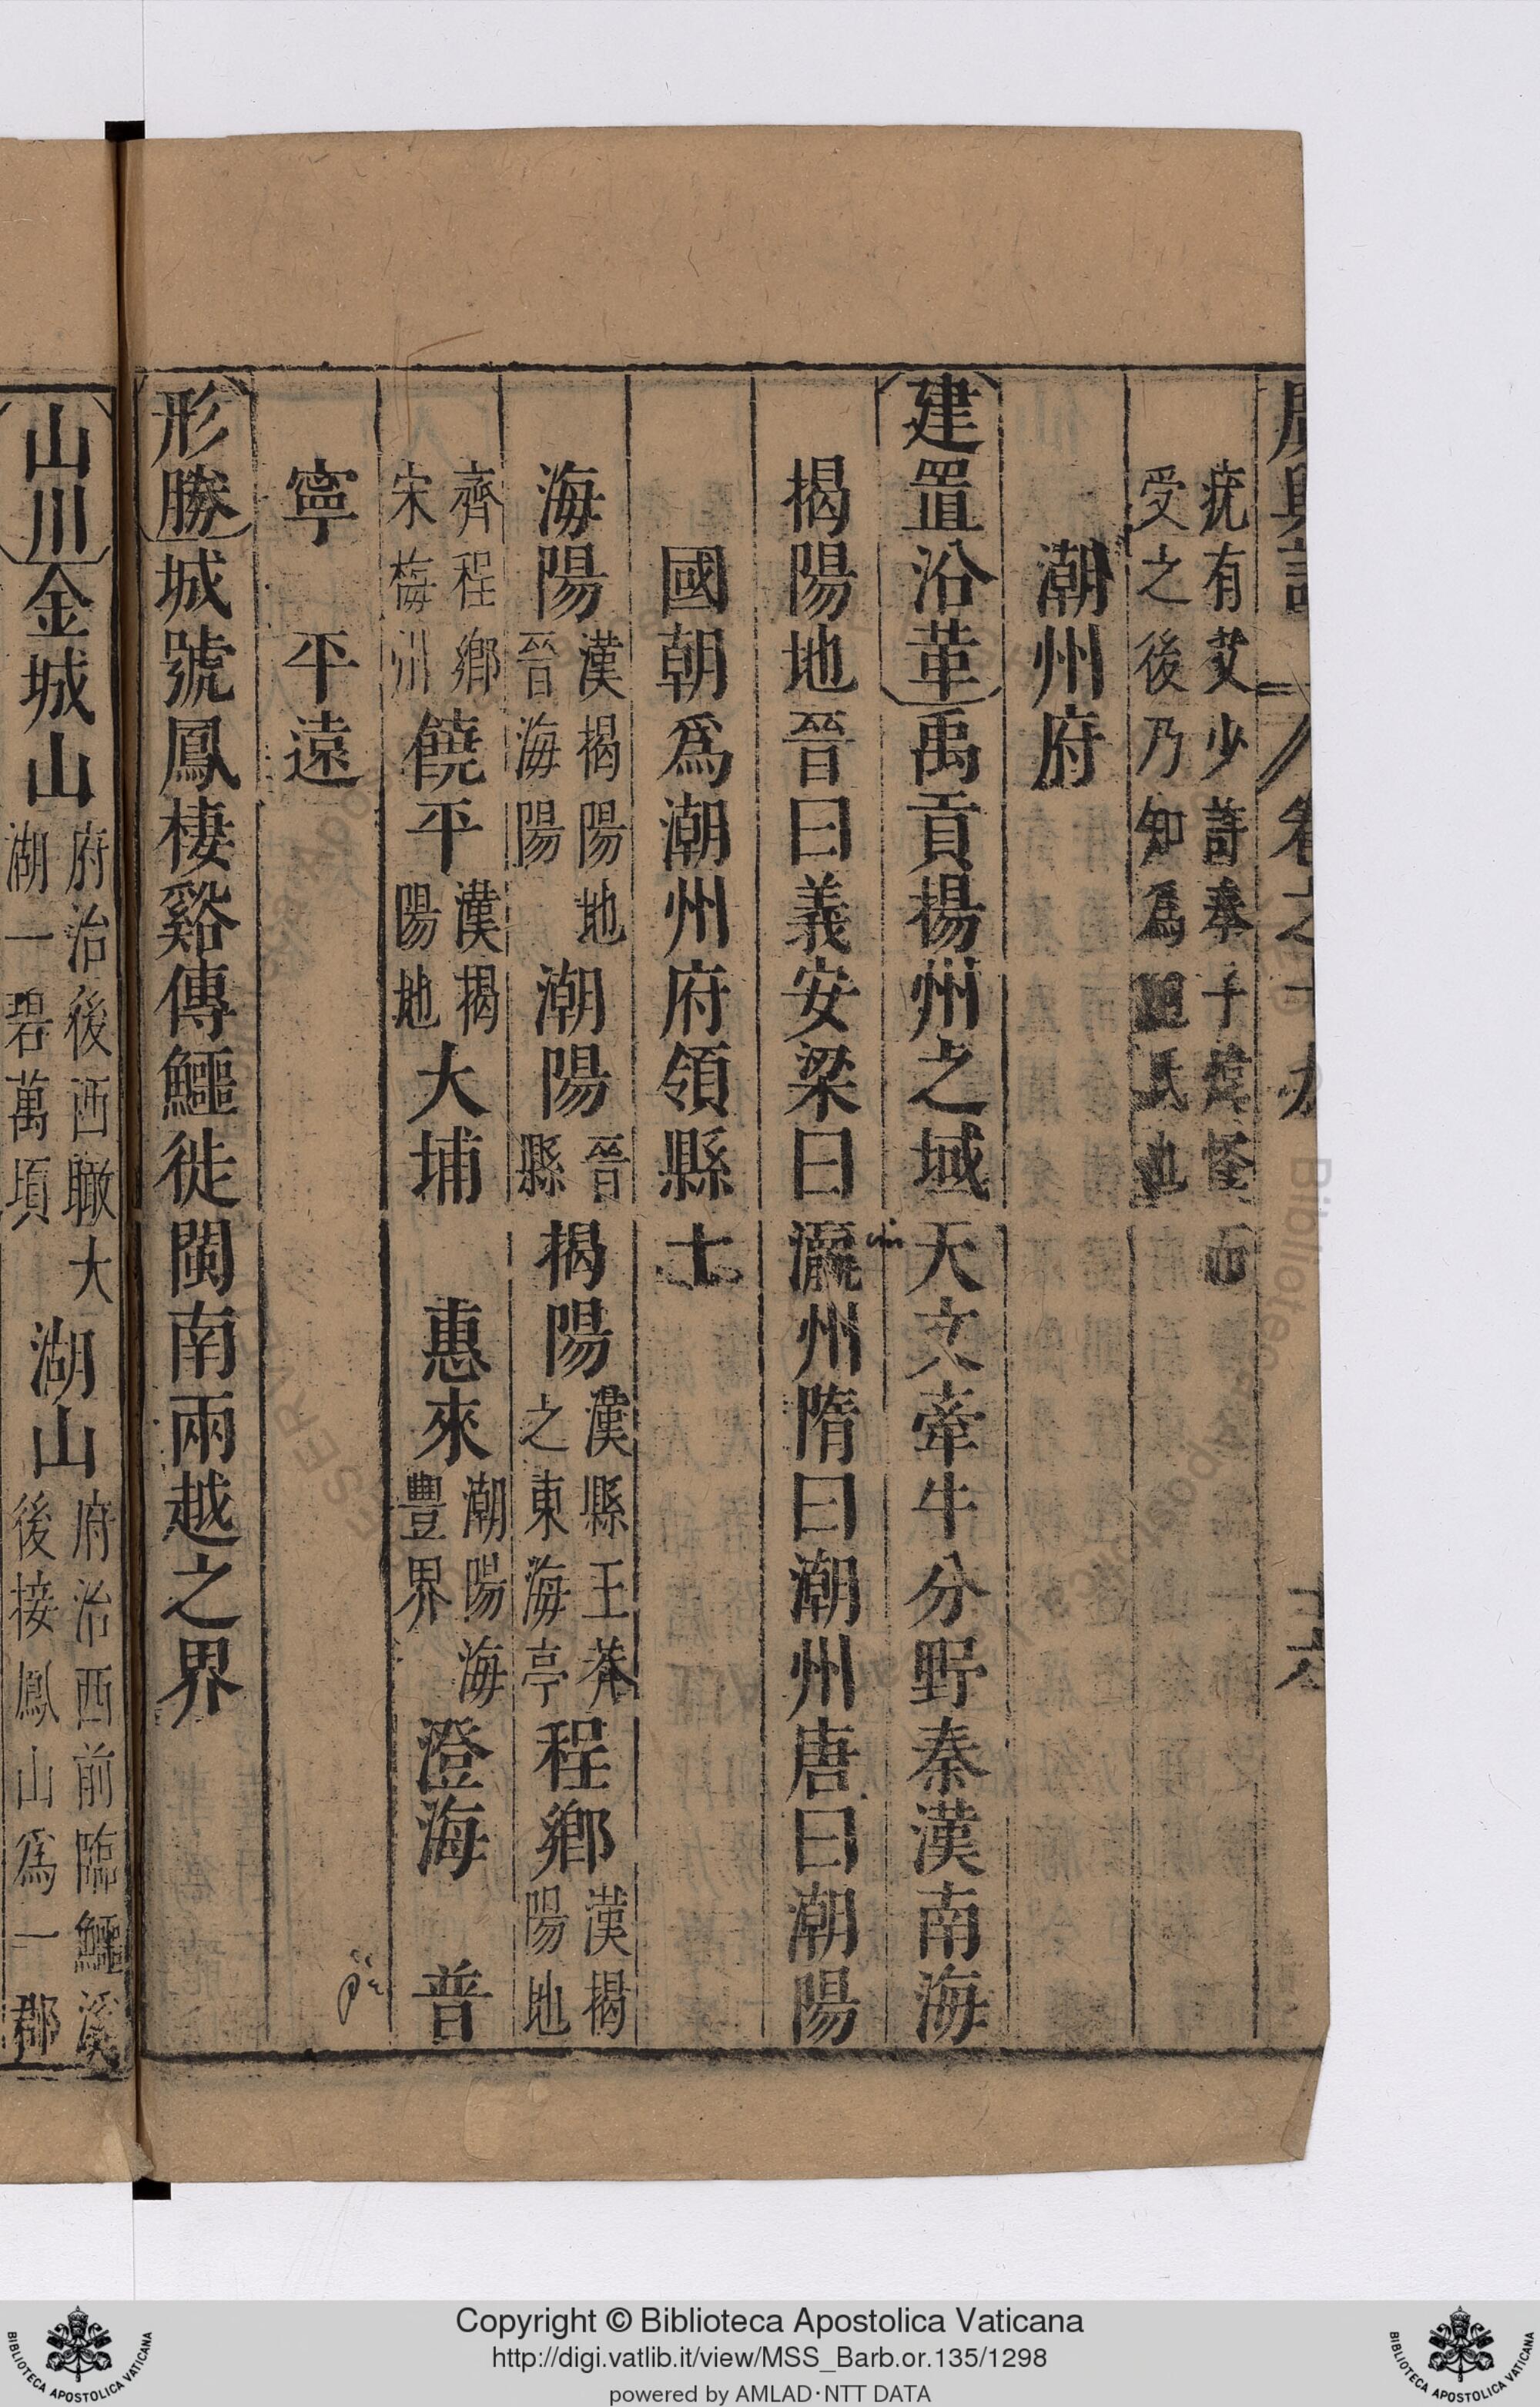 疣有艾少許奉子煒怪而
受之後乃知爲鮑氏也
潮州府
建置沿革禹貢揚州之域天文牽牛分野秦漢南海
揭陽地晉曰義安梁曰瀛州隋曰潮州唐曰潮陽
國朝爲潮州府領縣十
海陽漢揭陽地晉海陽潮陽晉縣揭陽漢縣王莽之東海亭程鄉漢揭陽地
齊程鄉宋梅州饒平漢揭陽地大埔惠來潮陽海豐界澄海普
寧平遠
形勝城號鳳棲谿傳鱷徙閩南兩越之界
山川金城山府治後西瞰大湖一碧萬頃湖山府治西前臨鱷溪後接鳳山爲一郡
Copyright © Biblioteca Apostolica Vaticana
http://digi.vatlib.it/view/MSS_Barb.or.135/1298
powered by AMLAD·NTT DATA
BIBLIOTECA APOSTOLICA VATICANA
BIBLIOTECA APOSTOLICA VATICANA